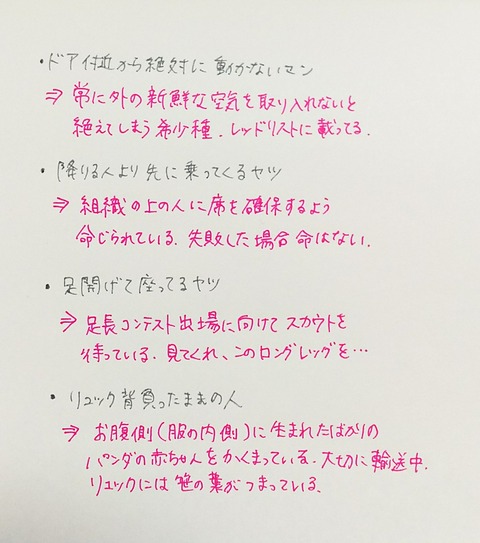 ・ドア付近から絶対に動かないマン
⇒ 常に外の新鮮な空気を取り入れないと
絶えてしまう希少種. レッドリストに載ってる.
・降りる人より先に乗ってくるヤツ
⇒ 組織の上の人に席を確保するよう
命じられている. 失敗した場合命はない.
・足開げて座ってるヤツ
⇒ 足長コンテスト出場に向けてスカウトを
待っている. 見てくれ、このロングレッグを…
・リュック背負ったままの人
⇒ お腹側(服の内側)に生まれたばかりの
パンダの赤ちゃんをかくまっている. 大切に輸送中.
リュックには笹の葉がつまっている.